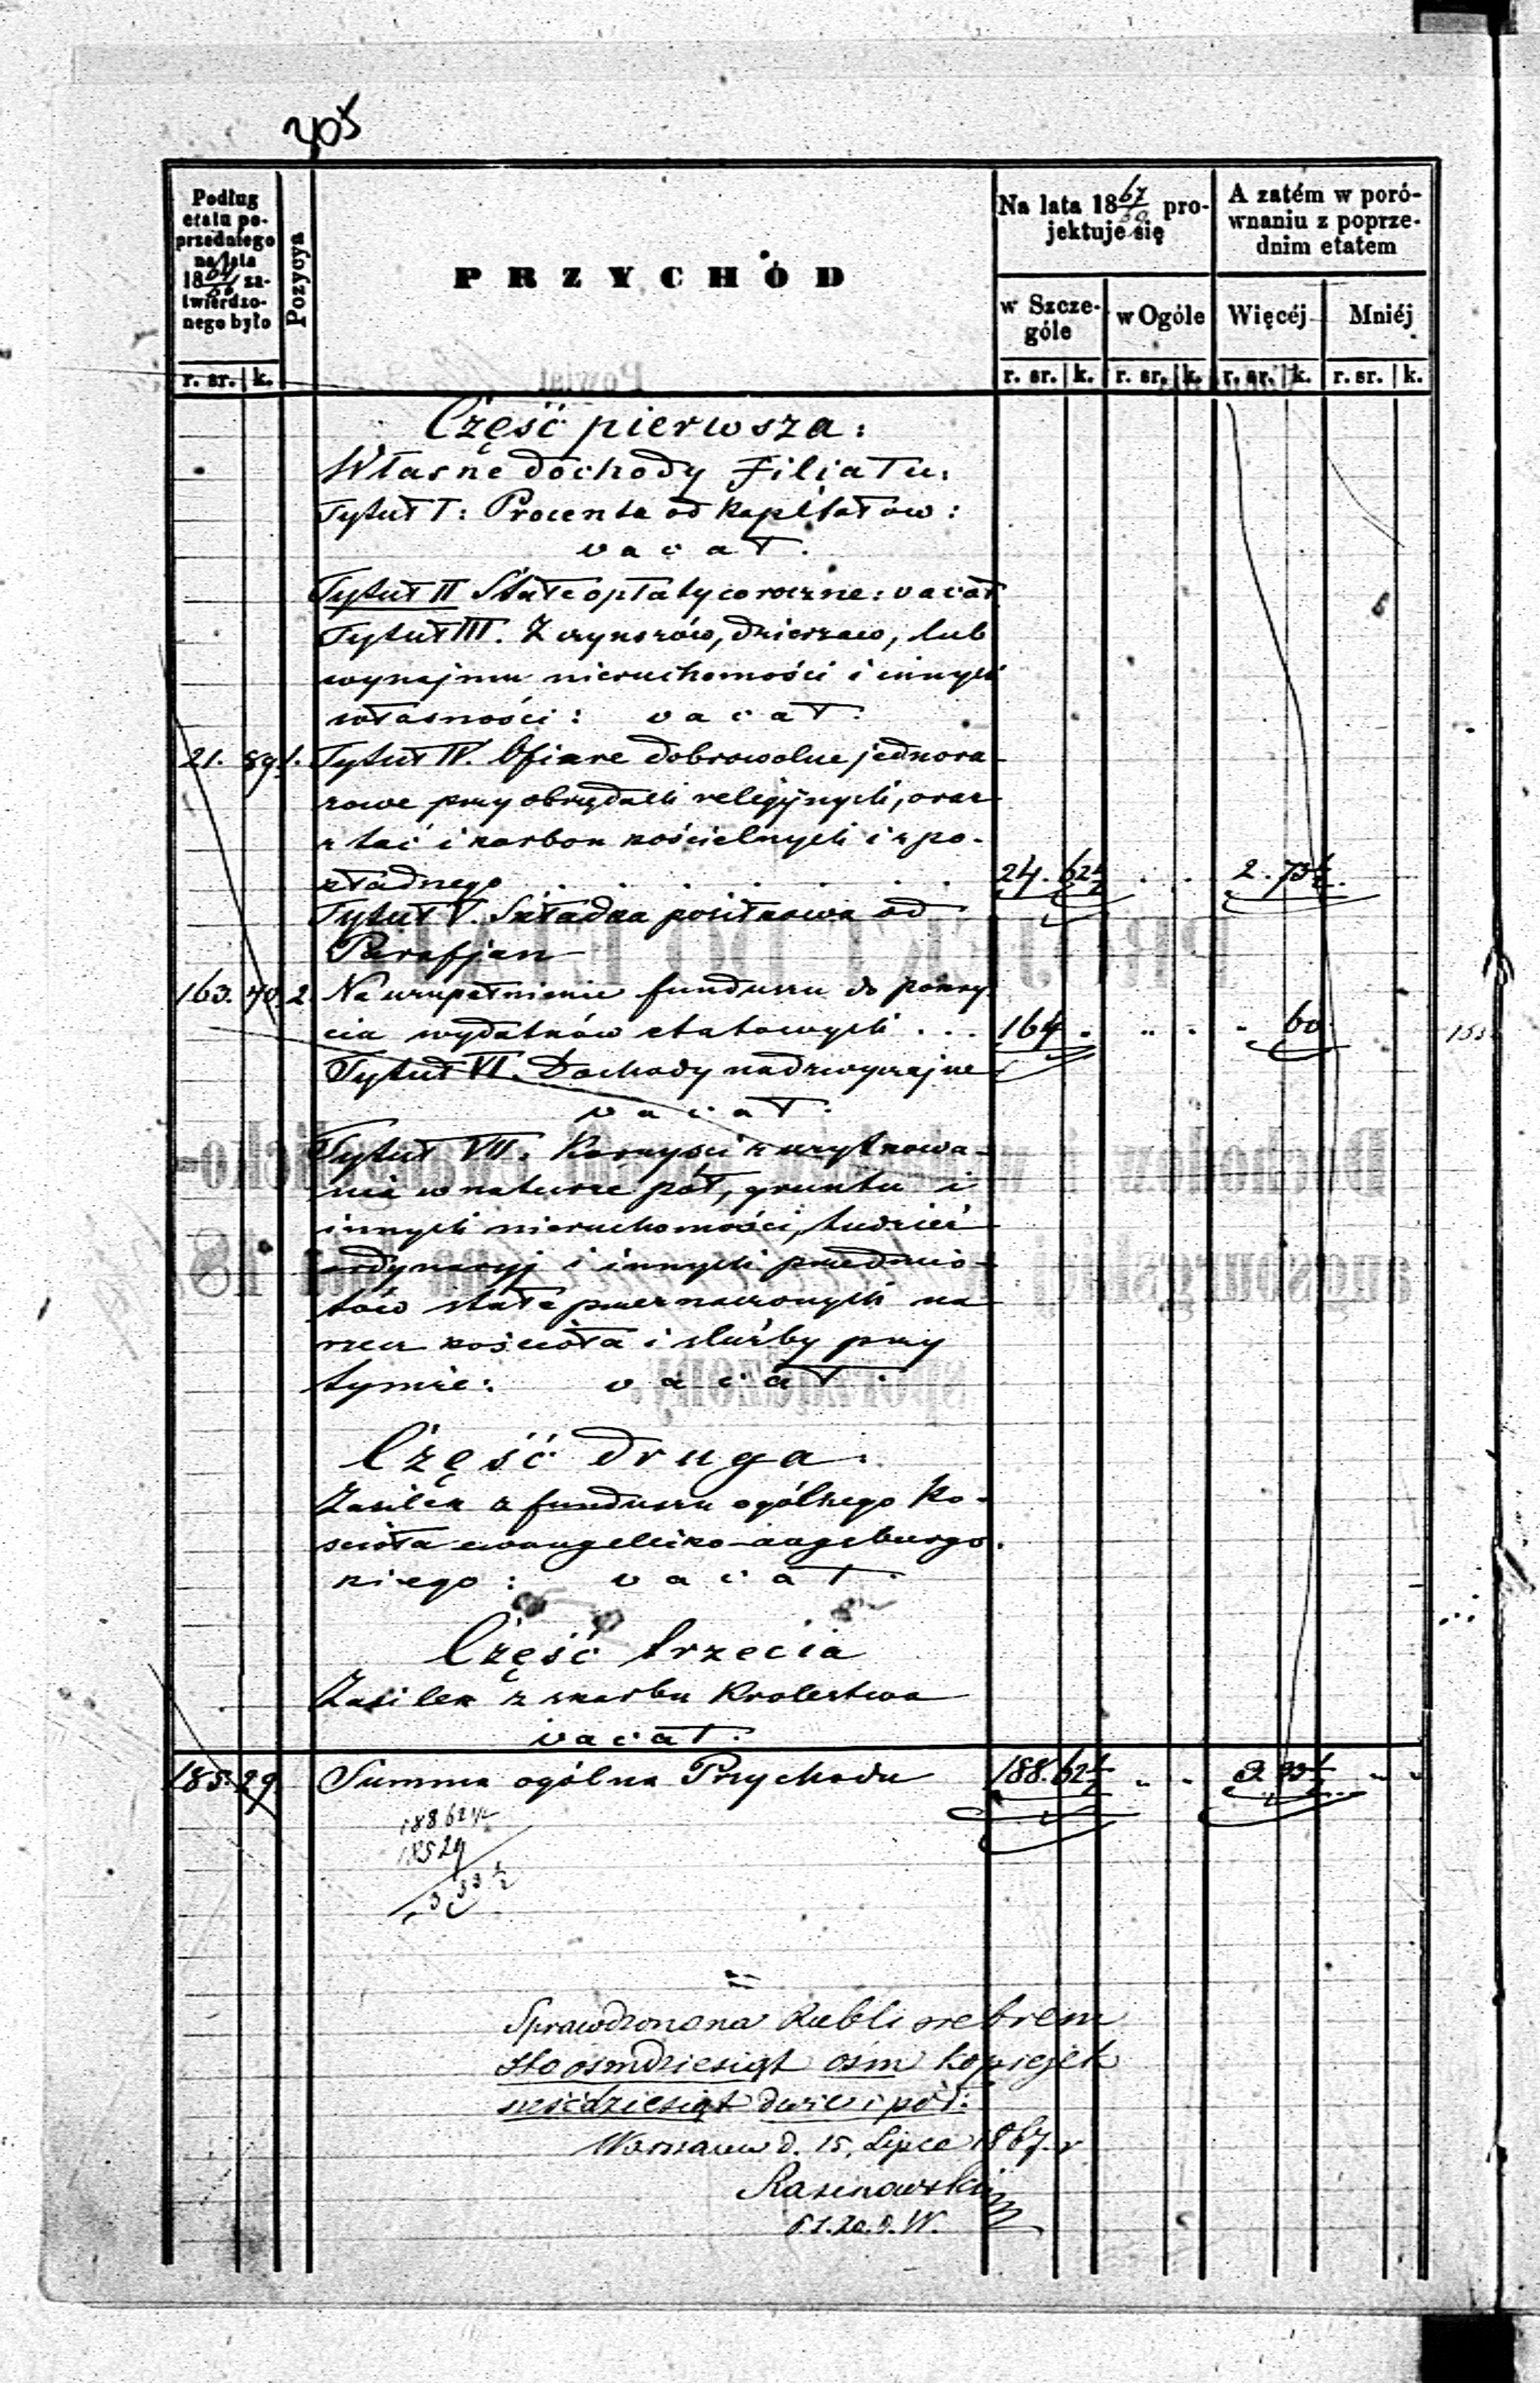 305
Podług
etatu po-
przedniego
na lata
1864/66 za-
twierdzo-
nego było
Pozycya
PRZYCHÓD
Na lata 1867/69 pro-
jektuje się
A zatém w poró-
wnaniu z poprze-
dnim etatem
w Szcze-
góle
w Ogóle
Więcéj
Mniéj
r. sr. k. r. sr. k. r. sr. k. r. sr. k. r. sr. k.
Część pierwsza:
Własne dochody Filiału:
Tytuł I: Procenta od kapitałów:
vacat.
Tytuł II Stałe opłaty coroczne: vacat
Tytuł III. Z czynszów, dzierżaw, lub
wynajmu nieruchomości i innych
własności: vacat.
21. 89 1. Tytuł IV. Ofiare dobrowolne jednora-
zowe przy obrzędach religijnych, oraz
z tac i karbon kościelnych i z po-
kładnego . . . . 24. 62½ . . 2. 73½
Tytuł V. Składka posiłkowa od
Parafjan
163. 40 2. Na uzupełnienie funduszu do pokry-
cia wydatków etatowych . . . 164 . " . " 60
Tytuł VI. Dochody nadzwyczajne
vacat.
Tytuł VII. Korzyści z użytkowa-
nia w naturze pół, gruntu i
innych nieruchomości, tudzież
ordynaryj i innych przedmio-
tów stałe przeznaczonych na
rzecz kościoła i służby przy
tymże: vacat.
Część druga.
Zasiłek z funduszu ogólnego Ko-
ścioła ewangelicko-augsburgs-
kiego: vacat.
Część trzecia
Zasiłek z skarbu Krolestwa
vacat.
185. 29 Summa ogólna Przychodu 188. 62½ " " 3. 33½ " "
188 62½
185 29
3 33½
Sprawdzono na Rubli srebrem
sto osmdziesiąt osm kopiejek
sześćdziesiąt dwie i pół:
Warszawa d. 15. Lipca 1867 r